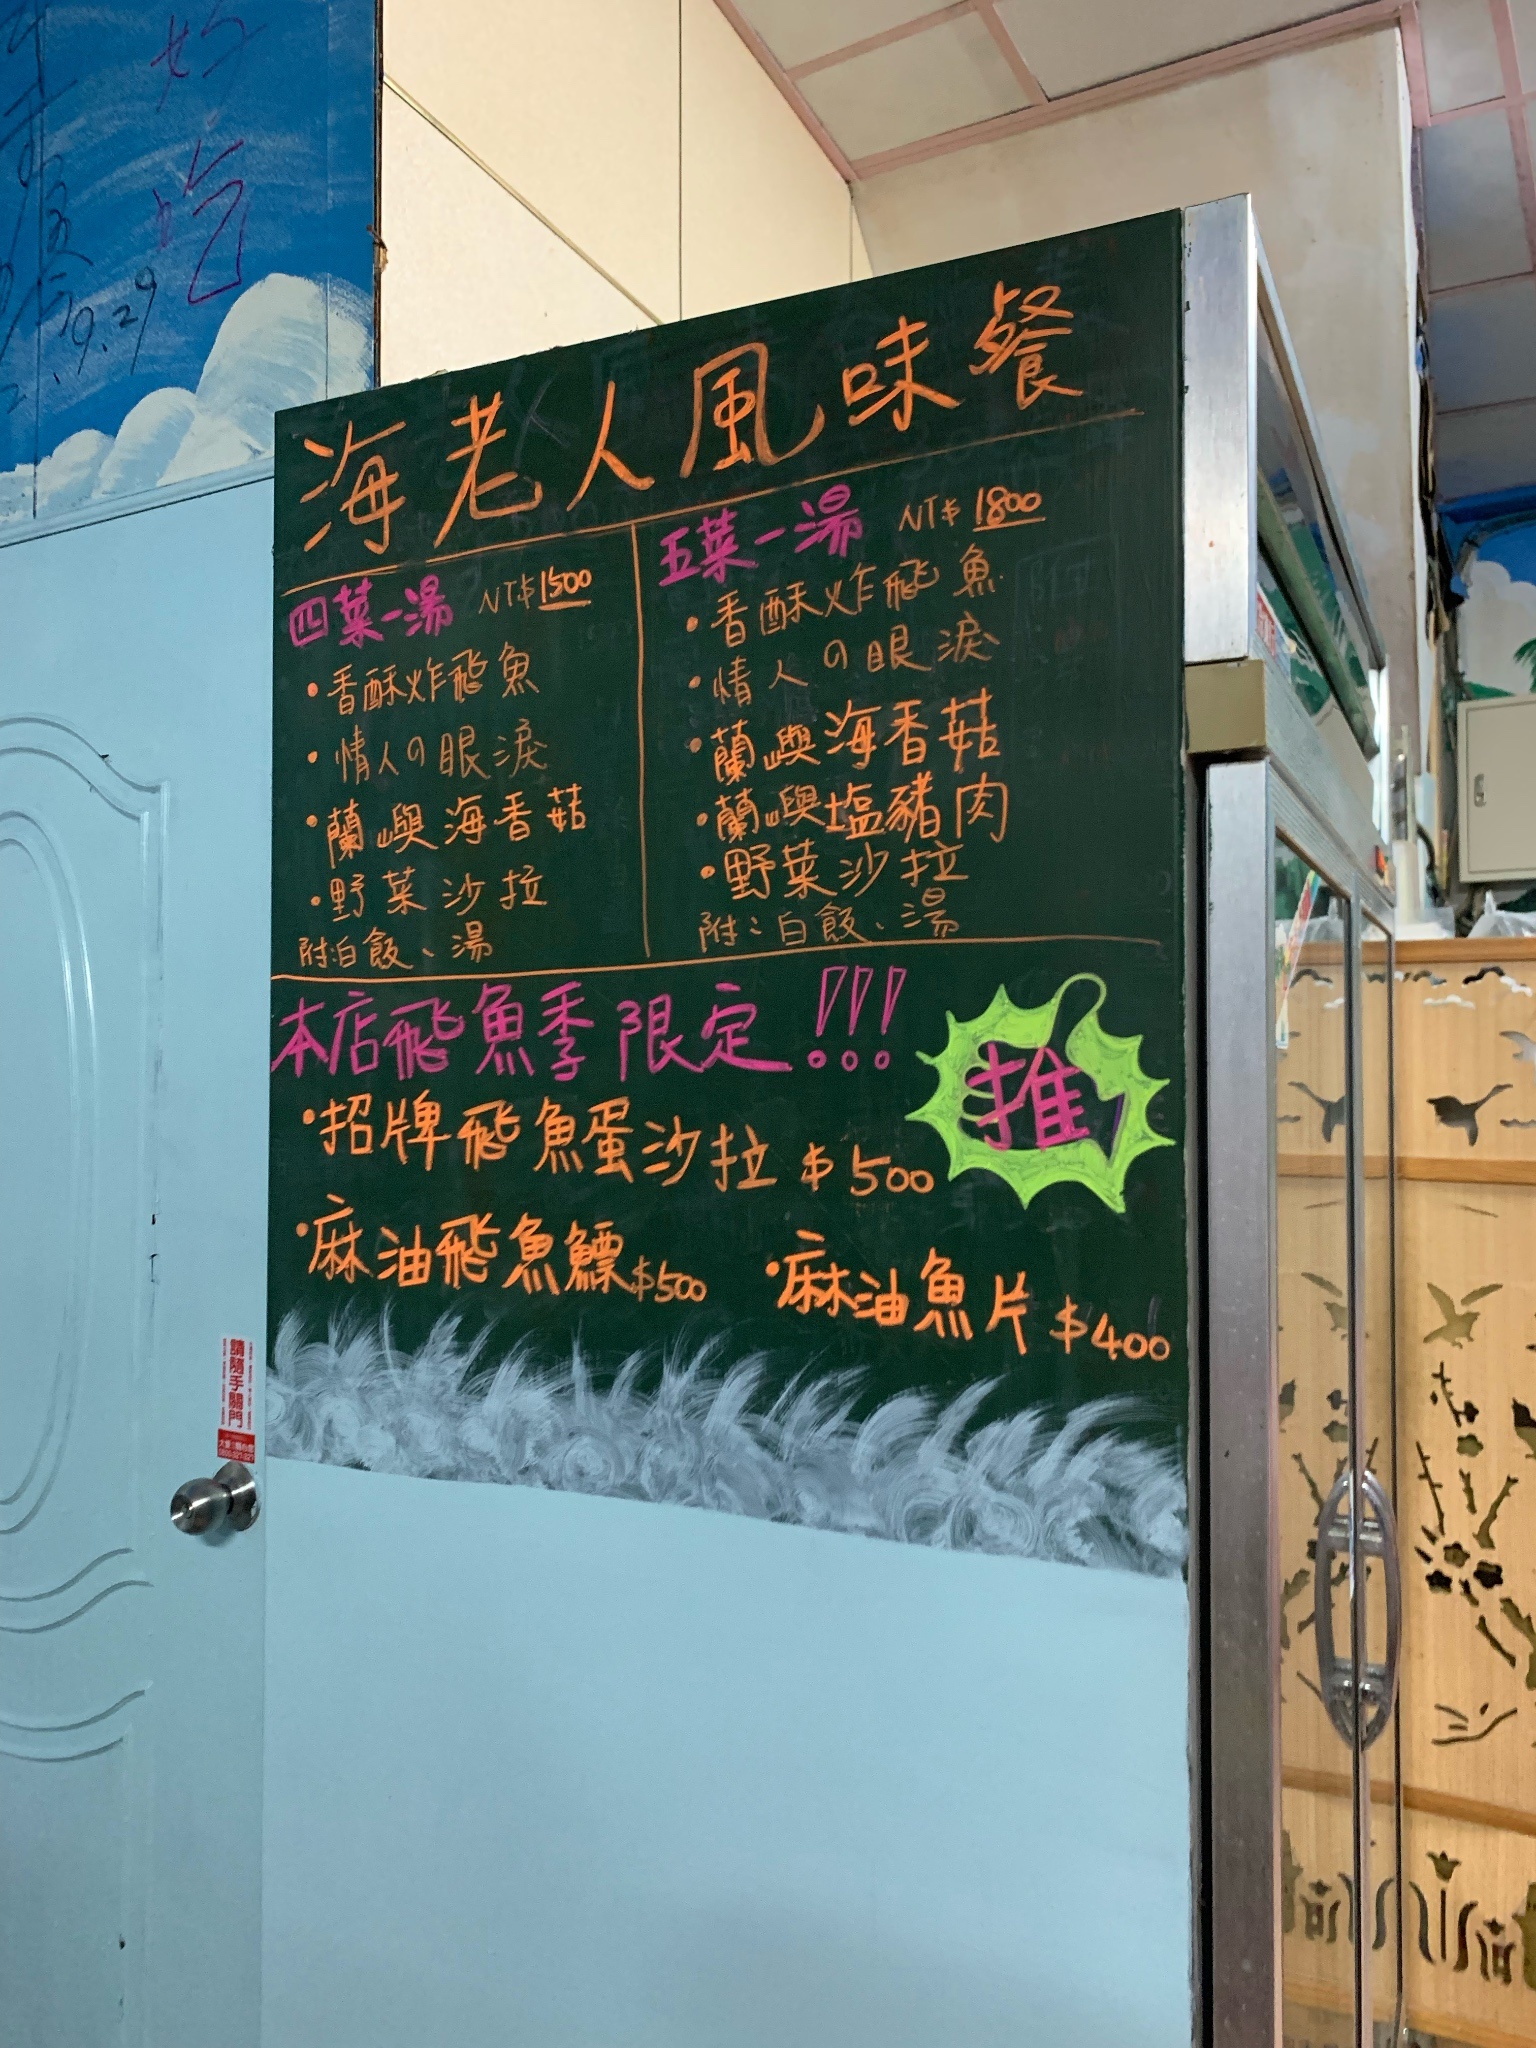 好吃
9.29
海老人風味餐
四菜一湯 NT$1500
•香酥炸飛魚
•情人の眼淚
•蘭嶼海香菇
•野菜沙拉
附:白飯、湯
五菜一湯 NT$1800
•香酥炸飛魚
•情人の眼淚
•蘭嶼海香菇
•蘭嶼塩豬肉
•野菜沙拉
附:白飯、湯
本店飛魚季限定!!!
推
•招牌飛魚蛋沙拉 $500
•麻油飛魚鰾$500
•麻油魚片 $400
請隨手關門